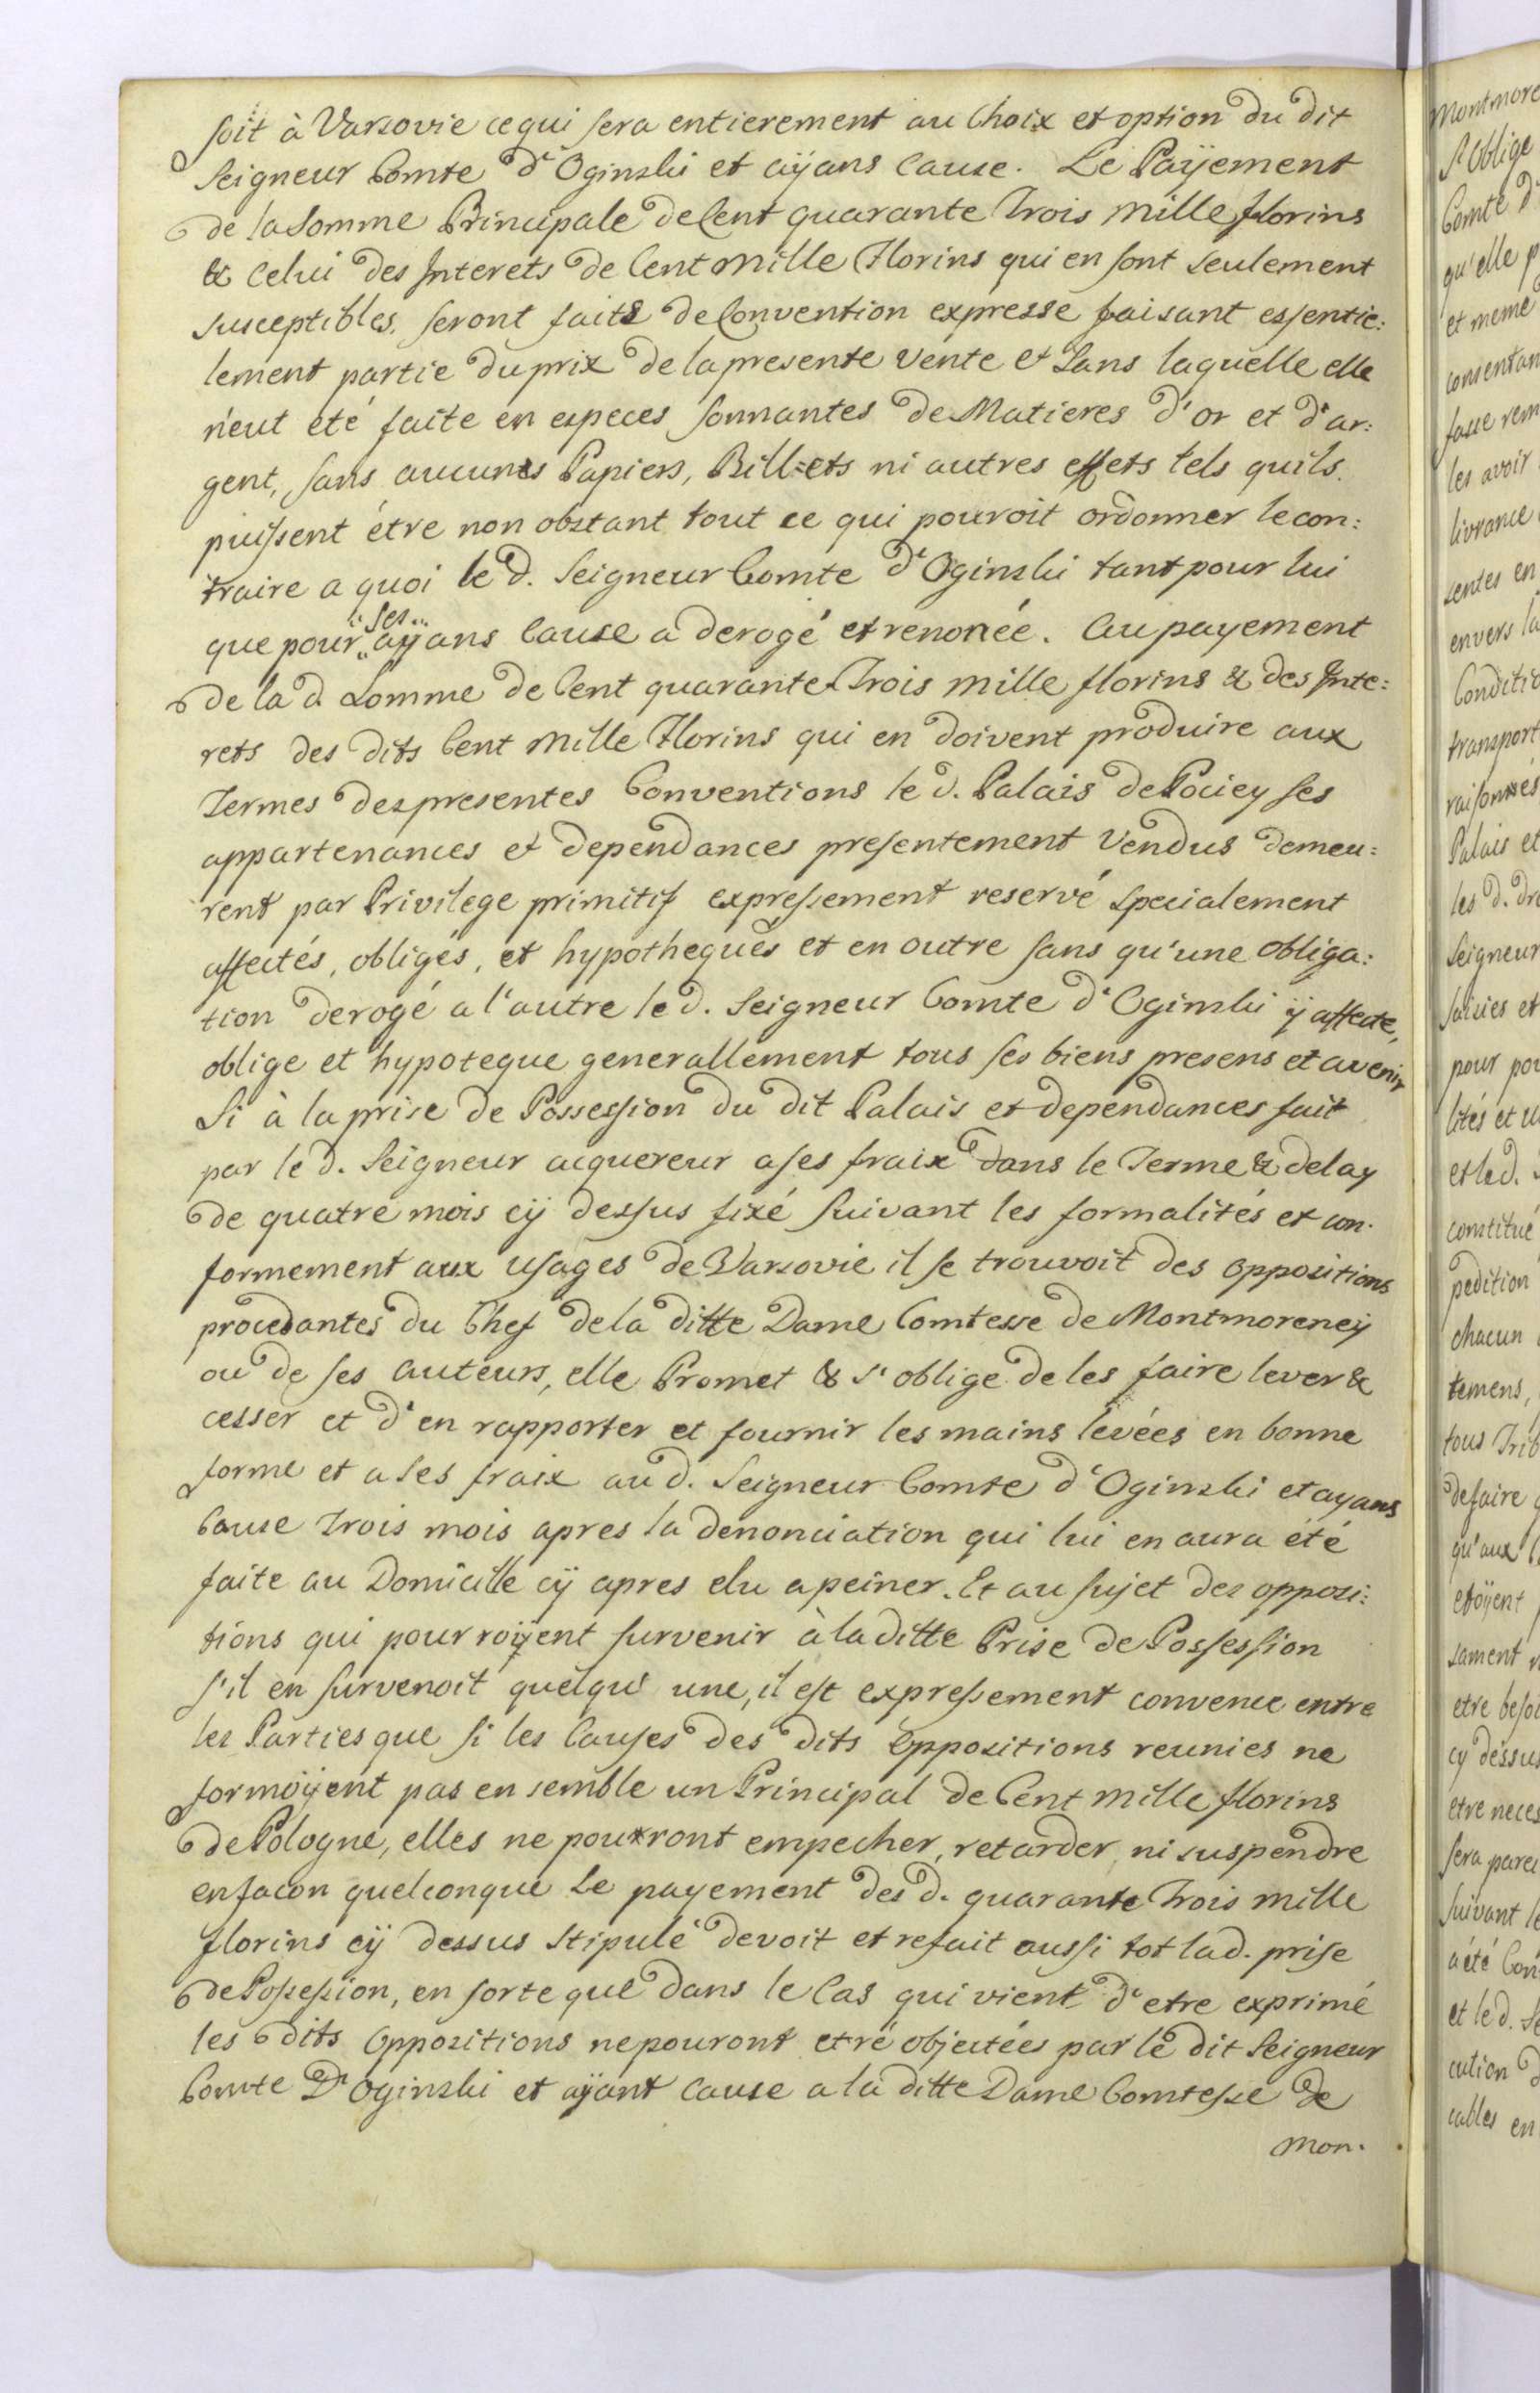 soit à Varsovie ce qui sera entierement au Choix et option du dit
Seigneur Comte d'Oginski et aÿans cause. Le Paÿement
de la Somme Principale de Cent quarante Trois mille florins
& Celui des Interets de Cent mille Florins qui en sont seulement
susceptibles. seront faits de Convention expresse faisant essentie:
lement partie du prix de la presente Vénte et Sans laquelle elle
n'eut eté faite en especes sonnantes de Matieres d'or et d'ar:
gent, sans aucunes Papiers, Bill=ets ni autres effets tels quils.
puissent étre non obstant tout ce qui pouroit ordonner le con:
traire a quoi le d. Seigneur Comte d'Oginski tant pour lui
que pour ses aÿans Cause a derogé et renoncé. Au payement
de la d. Somme de Cent quarante Trois mille florins & des Inte:
rets des dits Cent mille Florins qui en doivent produire aux
Termes des presentes Conventions le d. Palais de Pociey ses
appartenances et dependances presentement Vendus demeu:
rent par Privilege primitif expressement reservé specialement
affectés, obligés, et hypothequés et en outre sans qu'une obliga:
tion derogé a l'autre le d. Seigneur Comte d'Oginski ÿ affecte,
oblige et hypoteque generallement tous ses biens presens et avenir
Si à la prise de Possession du dit Palais et dependances fait
par le d. Seigneur acquereur a ses fraix dans le Terme & delay
de quatre mois cÿ dessus fixé suivant les formalités et con.
formement aux usages de Varsovie il se trouvoit des oppositions
procedantes du Chef de la ditte Dame Comtesse de Montmorencÿ
ou de ses Auteurs, elle Promet & s'oblige de les faire lever &
cesser et d'en rapporter et fournir les mains levées en bonne
forme et a ses fraix au d. Seigneur Comte d'Oginski et ayans
Cause Trois mois apres la denonciation qui lui en aura été
faite au Domicille cÿ apres elu a peiner. Et au sujet des opposi:
tions qui pourroÿent survenir à la ditte Prise de Possession
s'il en survenoit quelqu' une, il est expressement convenu entre
les Parties que si les Causes des dits Oppositions reunies ne
formoÿent pas en semble un Principal de Cent mille florins
de Pologne, elles ne pourront empecher, retarder, ni suspendre
en facon quelconque Le payement des d. quarante Trois mille
florins cÿ dessus Stipulé devoit et refait aussi tot lad. prise
de Possession, en sorte que dans le Cas qui vient d'etre exprimé
les dits Oppositions ne pouront etre objectées par le dit Seigneur
Comte D'Oginski et aÿant Cause a la ditte Dame Comtesse de
Mon.
Montmore
S'Oblige
Comte d'
qu'elle p
et meme
consentan
fasse rem
les avoir
livrance
sentes en
envers la
Conditio
transport
raisonnés
Palais et
les d. dro
Seigneur
saisies et
pour pou
lités et
et led.
constitué
pedition
chacun
temens,
tous Trib
de faire
qu'aux
etoÿent
sament
etre besoi
cy dessus
etre neces
sera parei
suivant le
a été Con
et le d. Se
cution d
cables en